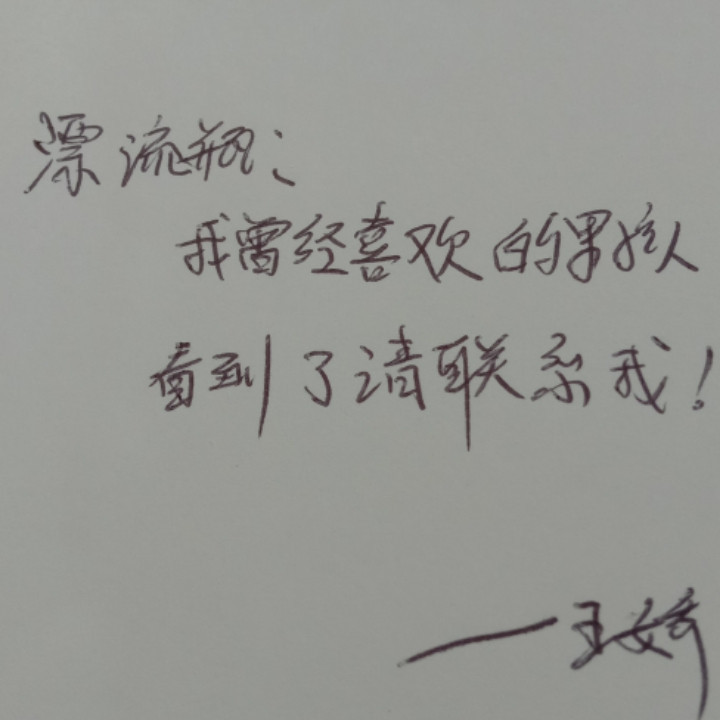 漂流瓶:
我曾经喜欢的男孩人
看到了请联系我!
——王娇